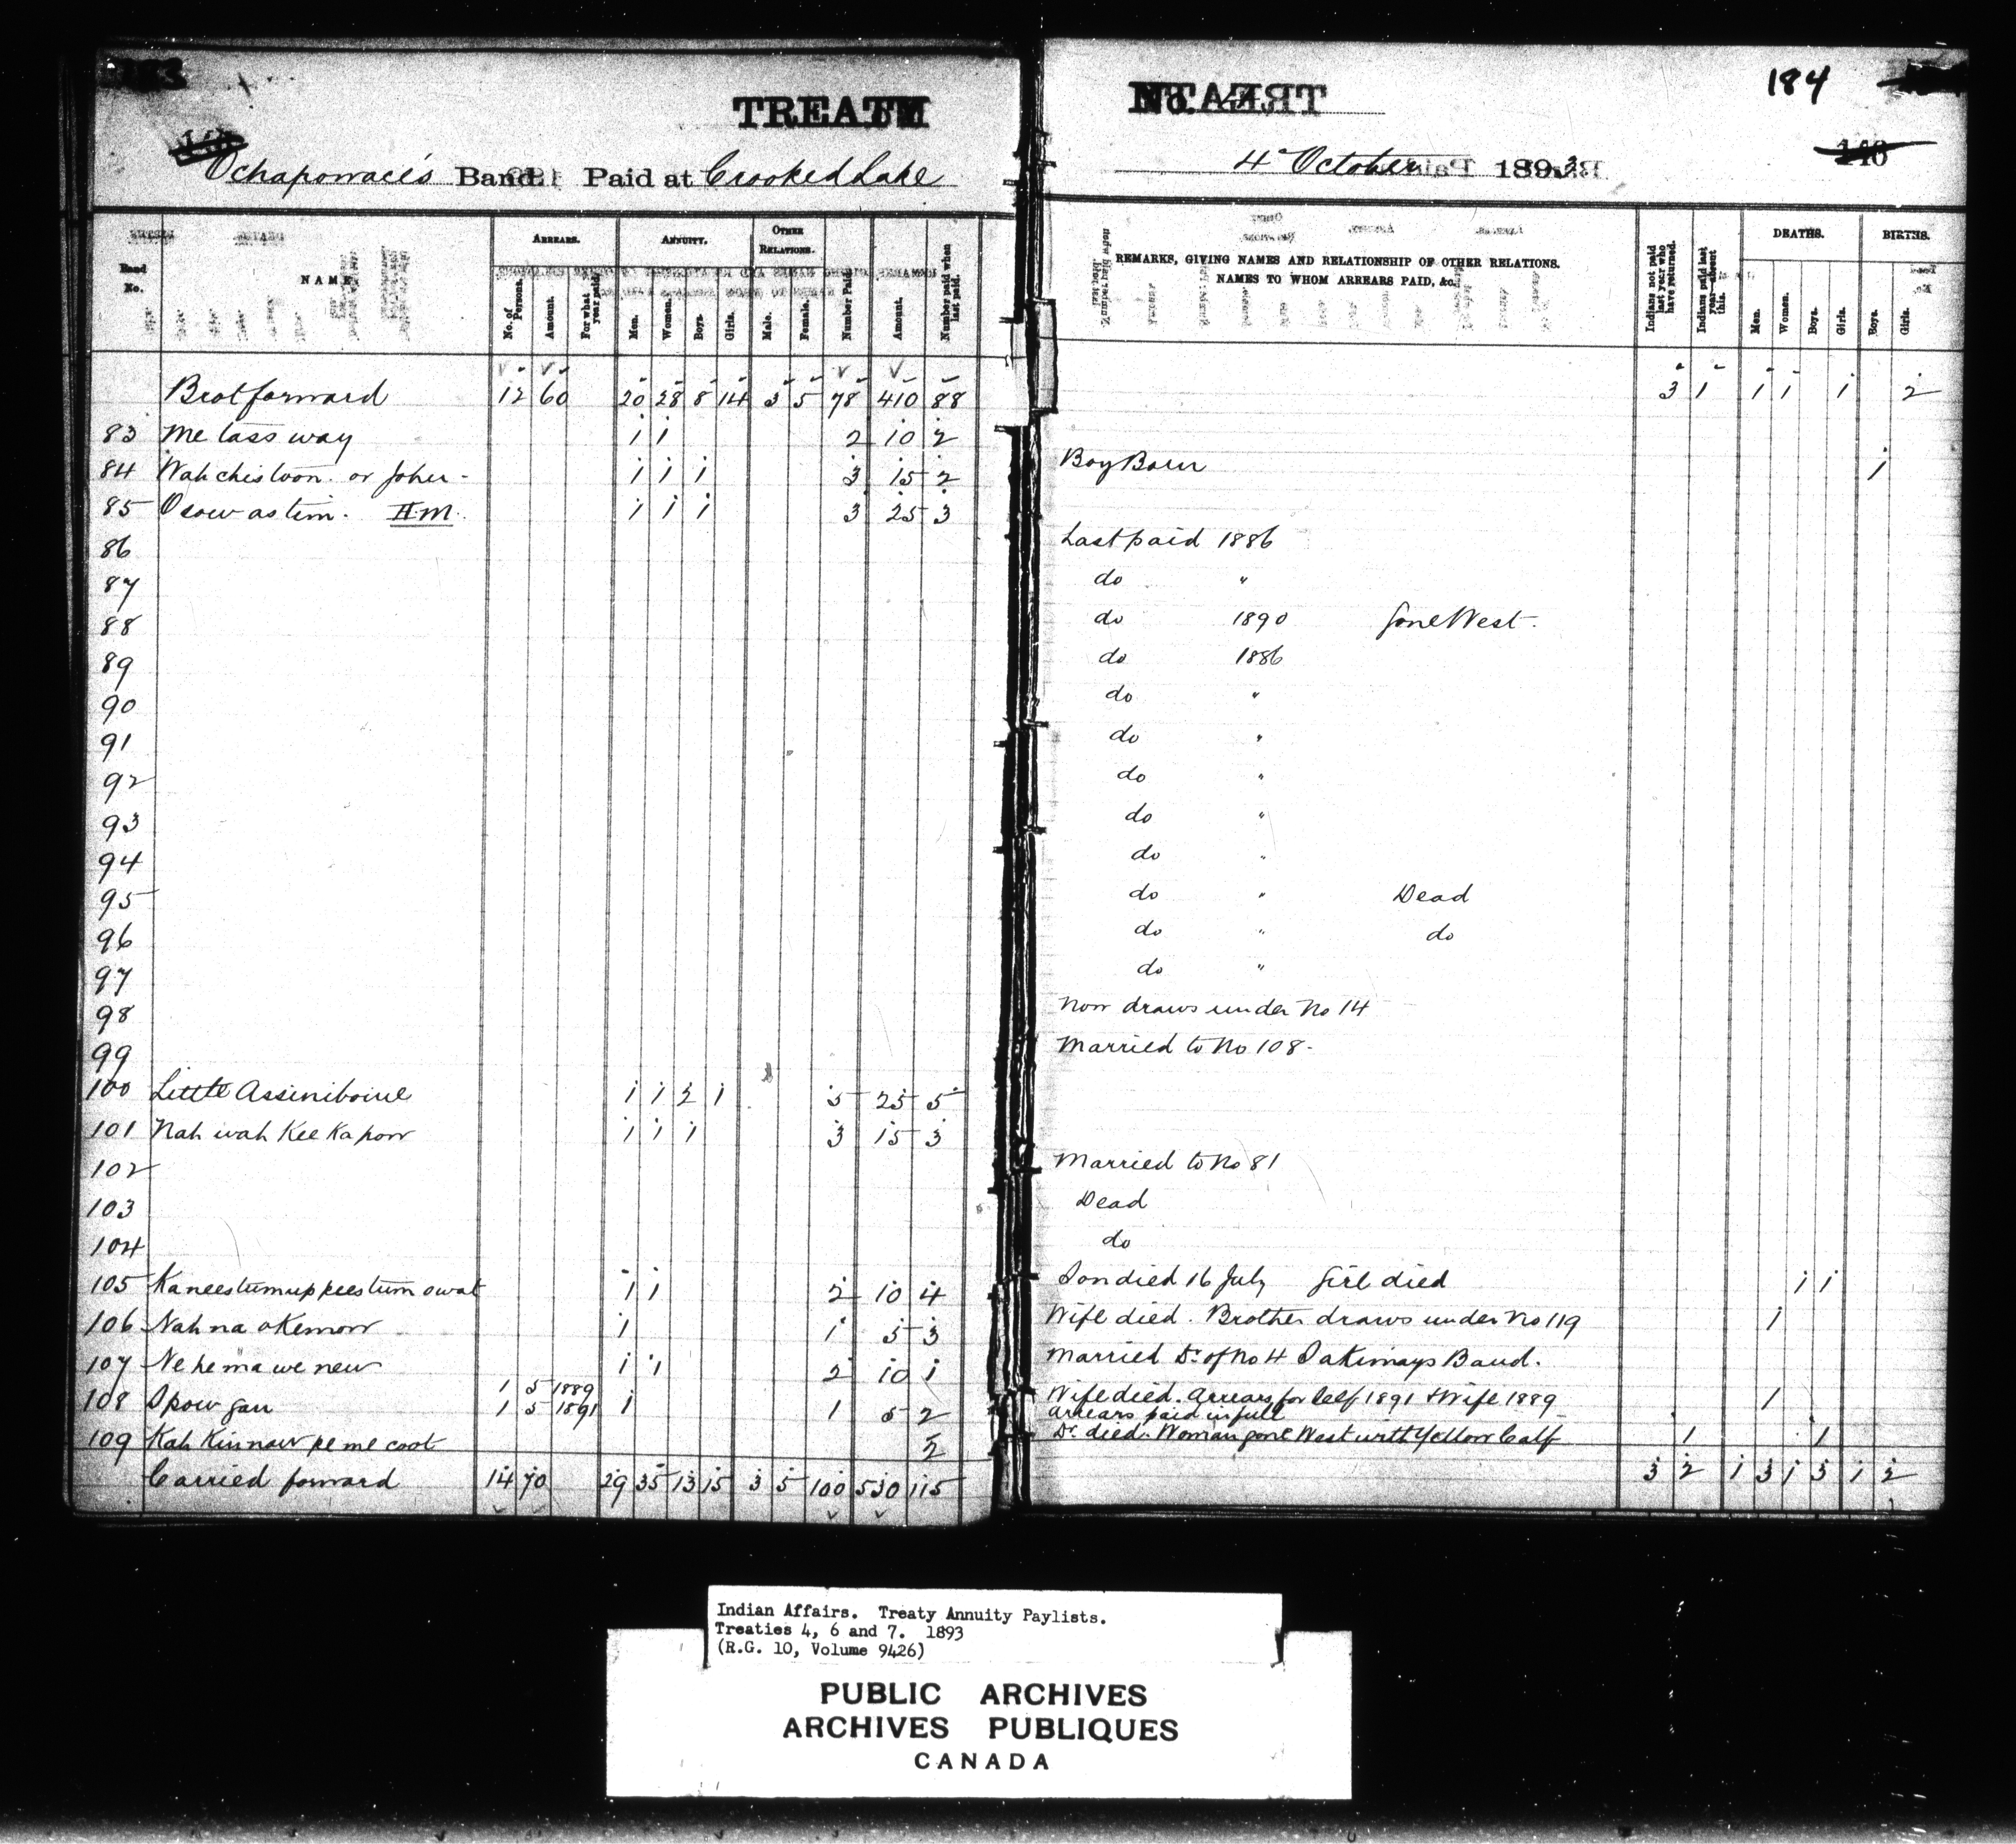 TREATY No. 4
184
140
Ochapowace's Band. Paid at Crooked Lake 4th October 1893
Band No. NAME. ARREARS. ANNUITY. OTHER RELATIONS. Number Paid. Amount. Number paid when last paid. REMARKS, GIVING NAMES AND RELATIONSHIP OF OTHER RELATIONS. NAMES TO WHOM ARREARS PAID, &c. Indians not paid last year who have returned. Indians paid last year—absent this. DEATHS. BIRTHS.
No. of Persons. Amount. For what year paid. Men. Women. Boys. Girls. Male. Female. Men. Women. Boys. Girls. Boys. Girls.
Brot forward 12 60 20 28 8 14 3 5 78 410 88 3 1 1 1 1 2
83 Me tass way 1 1 2 10 2
84 Wah chis toon or John 1 1 1 3 15 2 Boy Born 1
85 Osow as tim. II M. 1 1 1 3 25 3
86 Last paid 1886
87 do "
88 do 1890 Gone West.
89 do 1886
90 do "
91 do "
92 do "
93 do "
94 do "
95 do " Dead
96 do " do
97 do "
98 Now draws under No 14
99 Married to No 108.
100 Little Assiniboine 1 1 2 1 5 25 5
101 Nah wah Kee Ka pow 1 1 1 3 15 3
102 Married to No 81
103 Dead
104 do
105 Kaneestumupkeestum owat 1 1 2 10 4 Son died 16 July Girl died 1 1
106 Nah na okemow 1 1 5 3 Wife died. Brother draws under No 119 1
107 Ne he ma we new 1 1 2 10 1 Married Dr. of No 4 Sakimays Band.
108 Spow gan 1 5 1889 1 1 5 2 Wife died. Arrears for Self 1891 & Wife 1889 1
1 5 1891 arrears paid in full
109 Kah Kinnow pe me coot 2 Dr. died. Woman gone West with Yellow Calf 1 1
Carried forward 14 70 29 35 13 15 3 5 100 530 115 3 2 1 3 1 3 1 2
Indian Affairs. Treaty Annuity Paylists.
Treaties 4, 6 and 7. 1893
(R.G. 10, Volume 9426)
PUBLIC ARCHIVES
ARCHIVES PUBLIQUES
CANADA